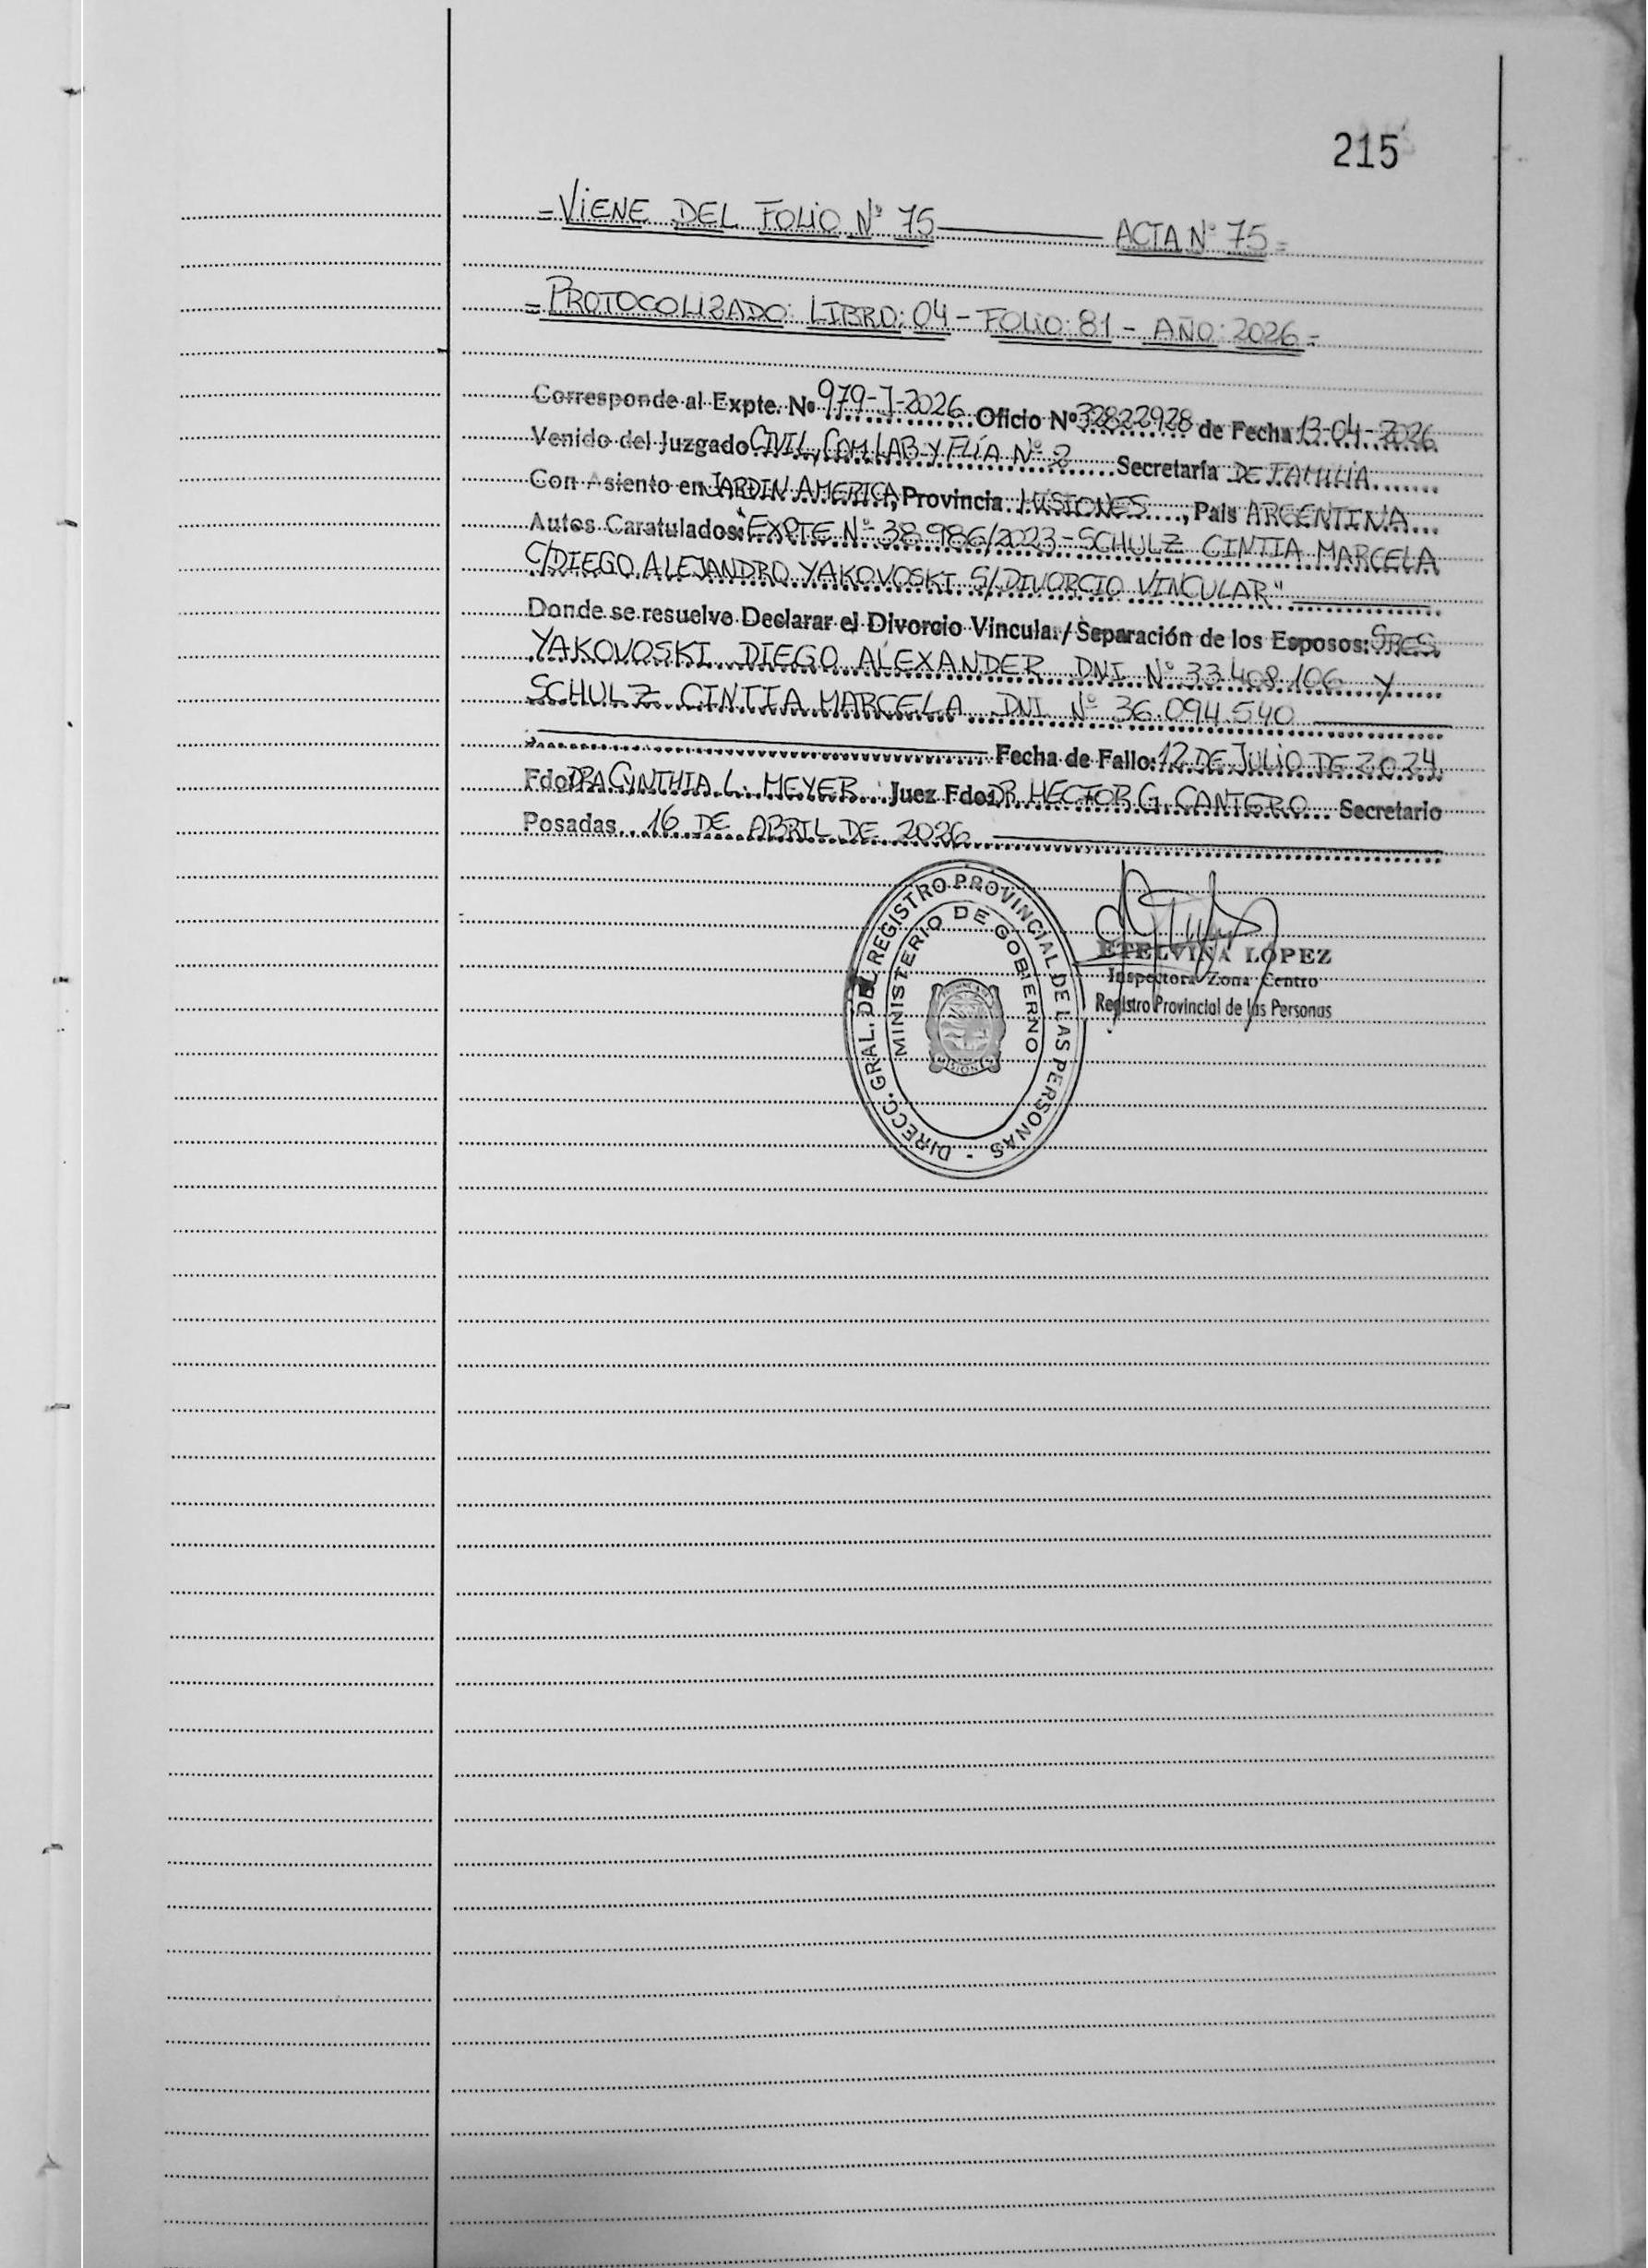 215
=VIENE DEL FOLIO Nº 75 ACTA Nº 75=
=PROTOCOLIZADO: LIBRO: 04 - FOLIO: 81 - AÑO: 2026=
Corresponde al Expte. Nº 979-J-2026 Oficio Nº 32822928 de Fecha 13-04-2026
Venido del Juzgado CIVIL, COM, LAB Y FLÍA Nº 2 Secretaría DE FAMILIA
Con Asiento en JARDIN AMERICA, Provincia MISIONES, País ARGENTINA
Autos Caratulados: "EXPTE Nº 38986/2023-SCHULZ CINTIA MARCELA
C/DIEGO ALEJANDRO YAKOVOSKI S/DIVORCIO VINCULAR"
Donde se resuelve Declarar el Divorcio Vincular/Separación de los Esposos: SRES
YAKOVOSKI DIEGO ALEXANDER DNI Nº 33.408.106 Y
SCHULZ CINTIA MARCELA DNI Nº 36.094.540
Fecha de Fallo: 12 DE JULIO DE 2024.
Fdo DRA CYNTHIA L. MEYER Juez Fdo: DR. HECTOR G. CANTERO Secretario
Posadas, 16 DE ABRIL DE 2026
DIRECC. GRAL. DEL REGISTRO PROVINCIAL DE LAS PERSONAS -
MINISTERIO DE GOBIERNO
MISIONES
ETELVINA LÓPEZ
Inspectora Zona Centro
Registro Provincial de las Personas